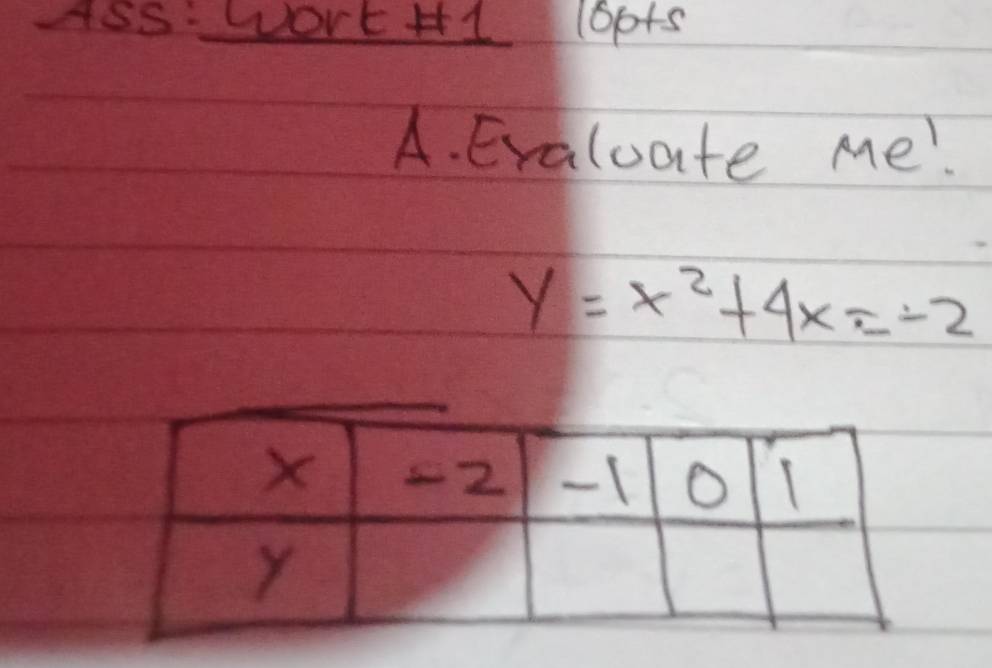 Ass: Work #1 10pts
A. Evaluate Me!
y = x² + 4x = -2
x -2 -1 0 1
y